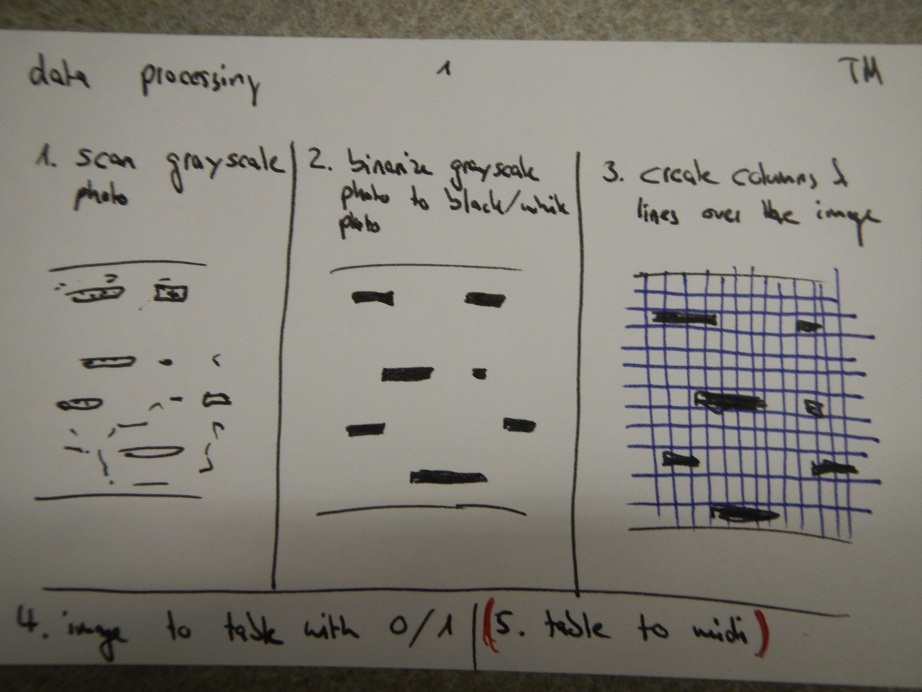 data processing 1 TM
1. scan grayscale
photo
2. binarize grayscale
photo to black/white
photo
3. create columns &
lines over the image
4. image to table with 0/1
(5. table to midi)